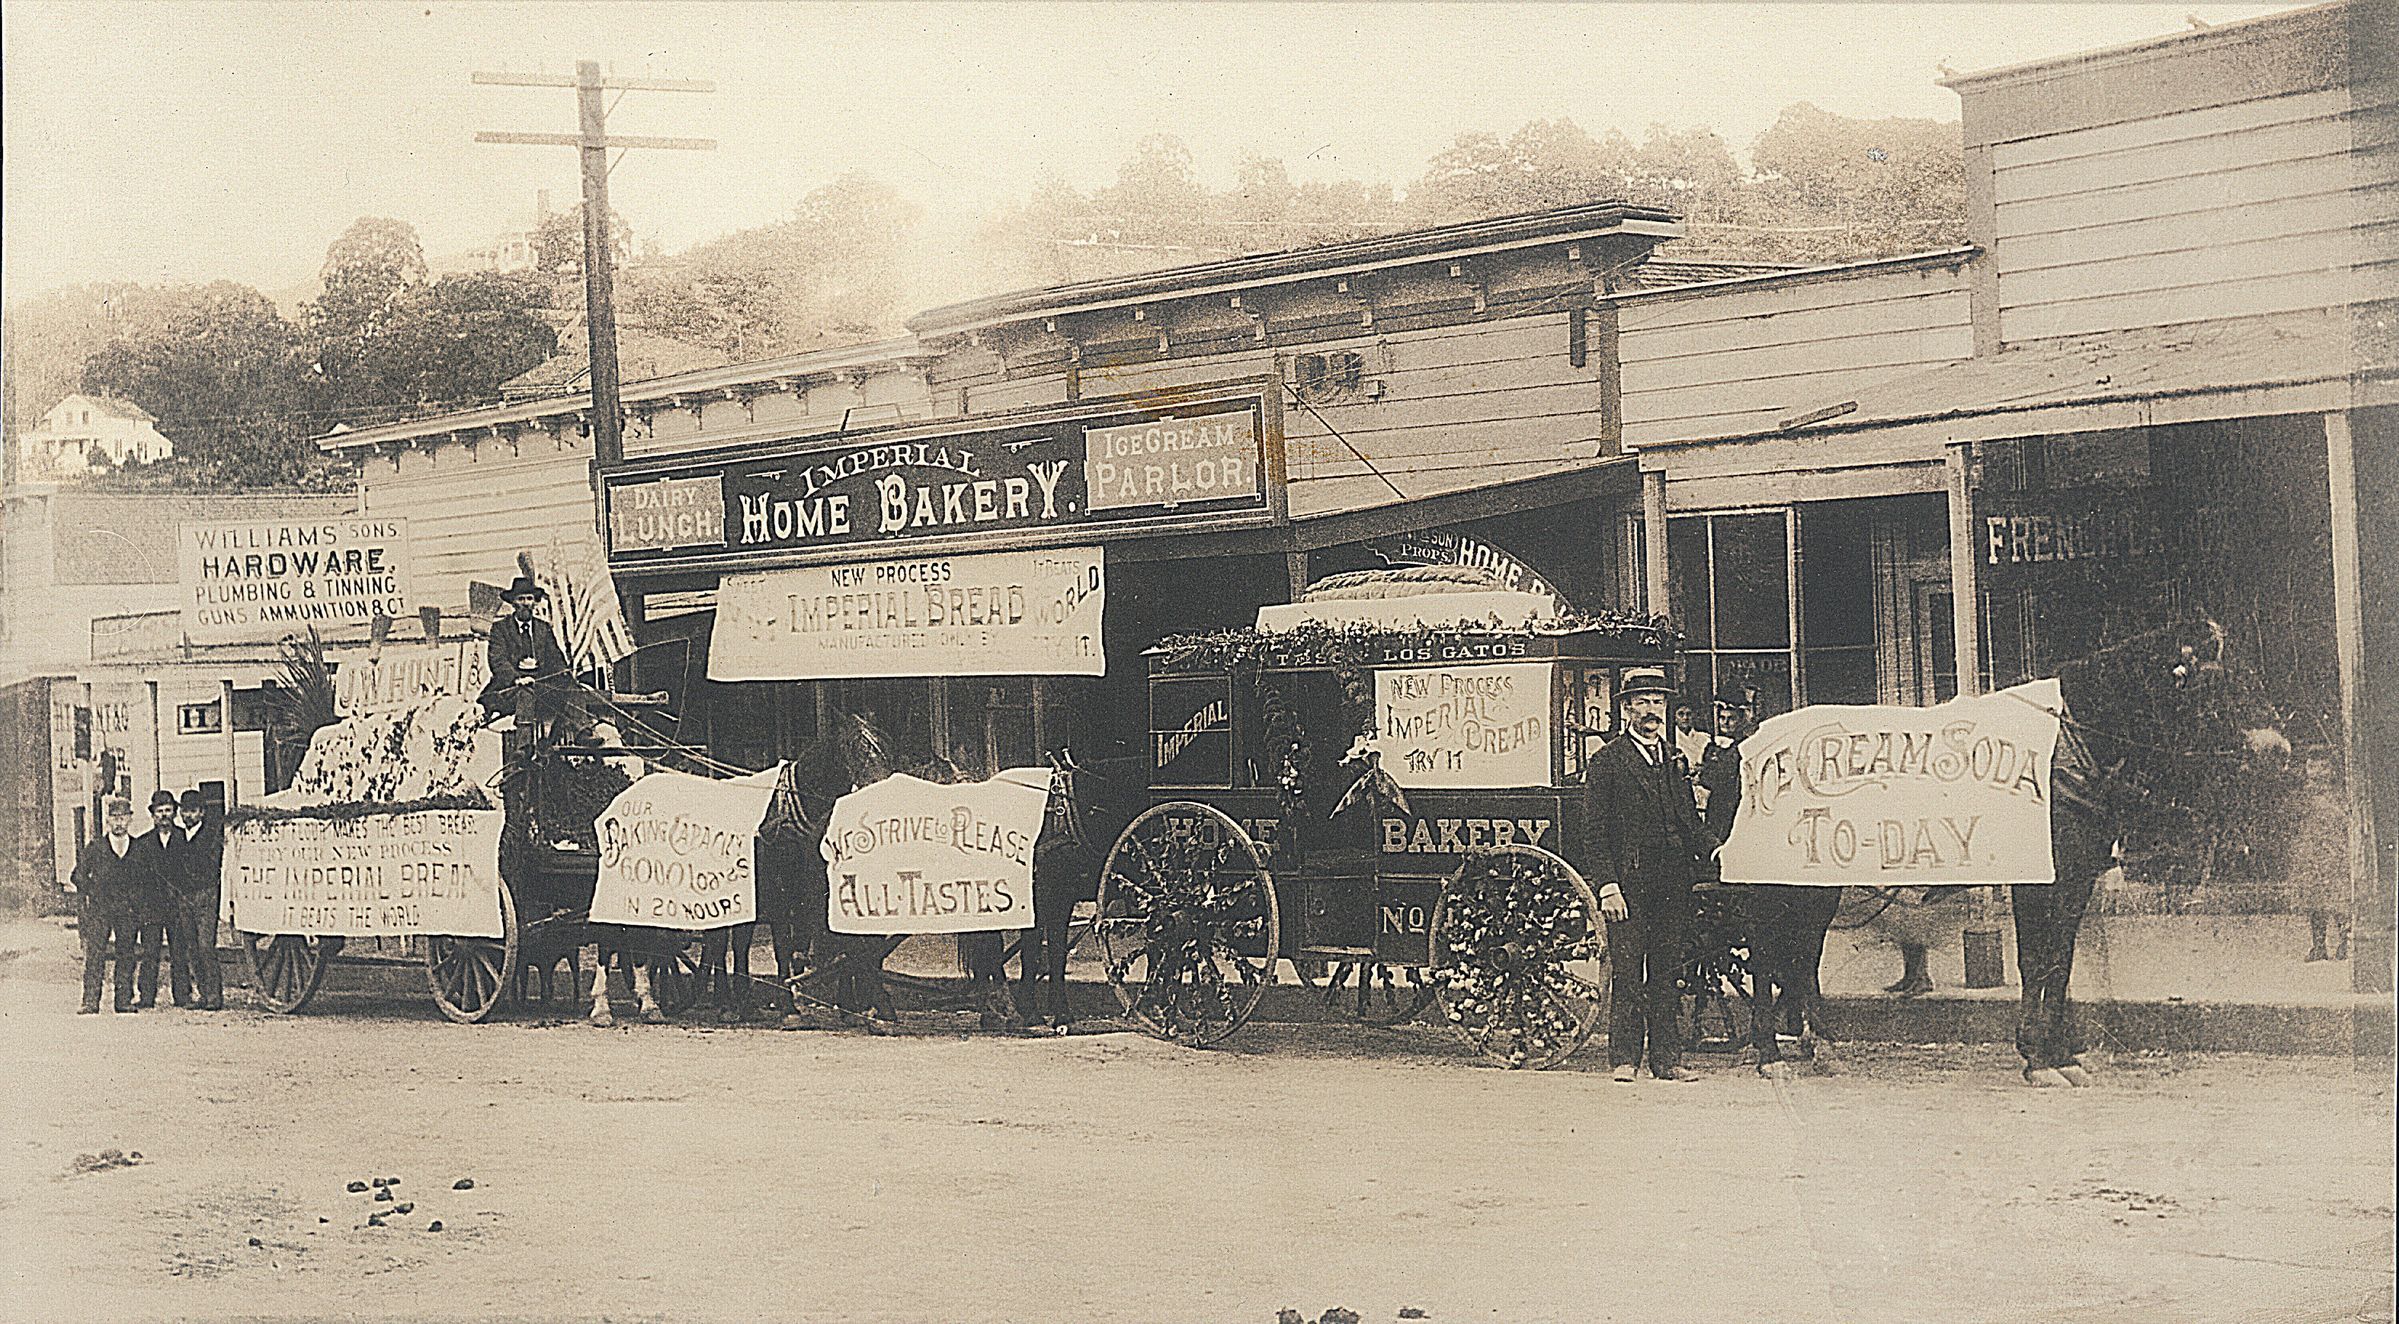 WILLIAMS' SONS
HARDWARE.
PLUMBING & TINNING.
GUNS AMMUNITION & CT
DAIRY
LUNCH.
IMPERIAL
HOME BAKERY.
ICE CREAM
PARLOR.
NEW PROCESS
IMPERIAL BREAD
MANUFACTURED ONLY BY
IT BEATS
WORLD
IT.
SON
PROPS.
HOME
FRENCH
J.W. HUNT &
THE BEST FLOUR MAKES THE BEST BREAD.
TRY OUR NEW PROCESS
THE IMPERIAL BREAD
IT BEATS THE WORLD
OUR
BAKING CAPACITY
6000 LOAVES
IN 20 HOURS.
WE STRIVE TO PLEASE
ALL TASTES.
LOS GATOS
IMPERIAL
NEW PROCESS
IMPERIAL
BREAD
TRY IT
HOME BAKERY
NO
ICE CREAM SODA
TO-DAY.